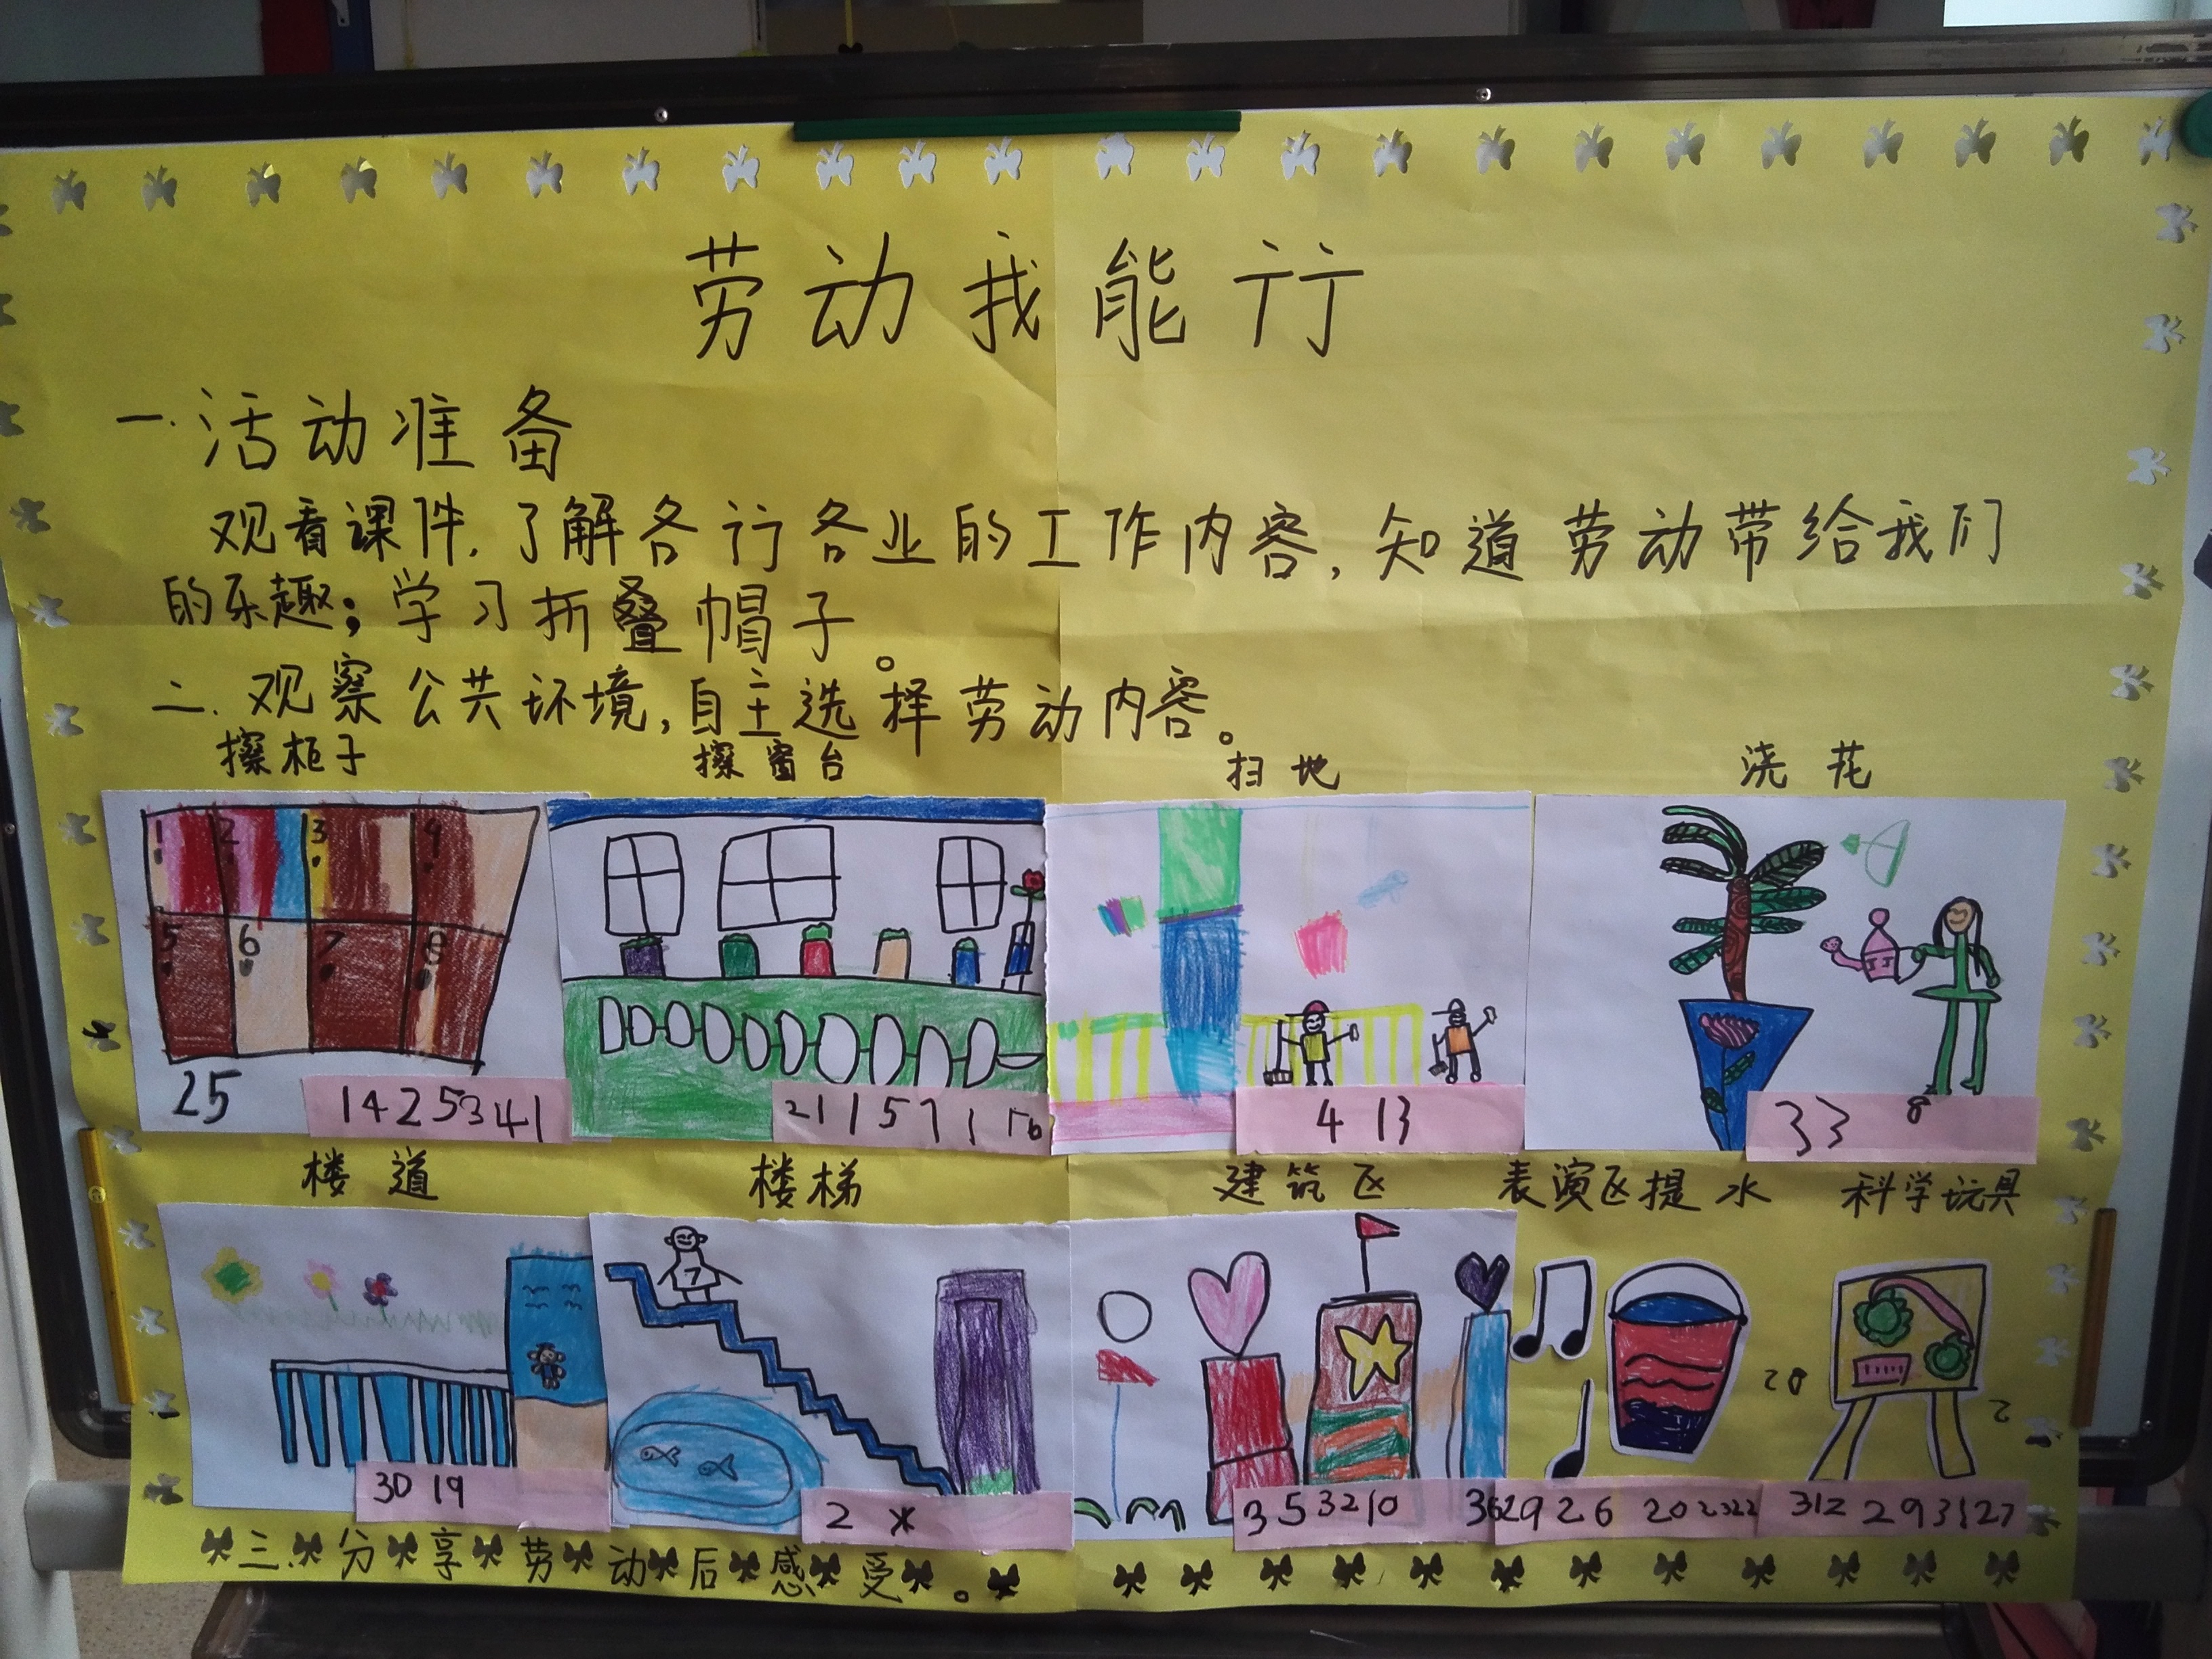 劳动我能行
一.活动准备
观看课件,了解各行各业的工作内容,知道劳动带给我们
的乐趣;学习折叠帽子。
二.观察公共环境,自主选择劳动内容。
擦柜子 擦窗台 扫地 浇花
1 2 3 4
5 6 7 8
25 14 25 34 1 4 13 33 8
楼道 楼梯 建筑区 表演区提水 科学玩具
7
20 2
30 19 2 35 32 10 36 29 26 20 23 22 312 29 31 27
三.分享劳动后感受。